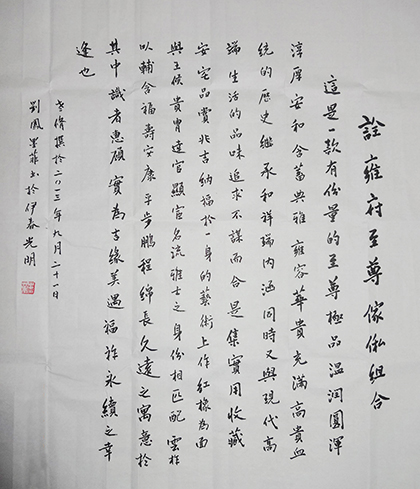 詮雍府至尊傢俬組合
這是一款有份量的至尊極品溫潤圓渾
淳厚安和含蓄典雅雍容華貴充滿高貴血
統的歷史繼承和祥瑞内涵同時又與現代高
端生活的品味追求不謀而合是集實用收藏
安宅品賞兆吉納福於一身的藝術上作紅橡為面
與王侯貴胄達官顯宦名流雅士之身份相匹配雲柱
以輔含福壽安康平步鵬程綿長久遠之寓意於
其中識者惠顧實為吉緣美遇福祚永續之幸
逢也
撰於二〇一三年九月二十一日
劉鳳墨菲書於伊春光明